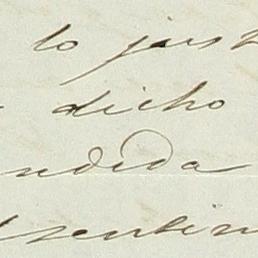 lo just
dicho
ndida
sentim